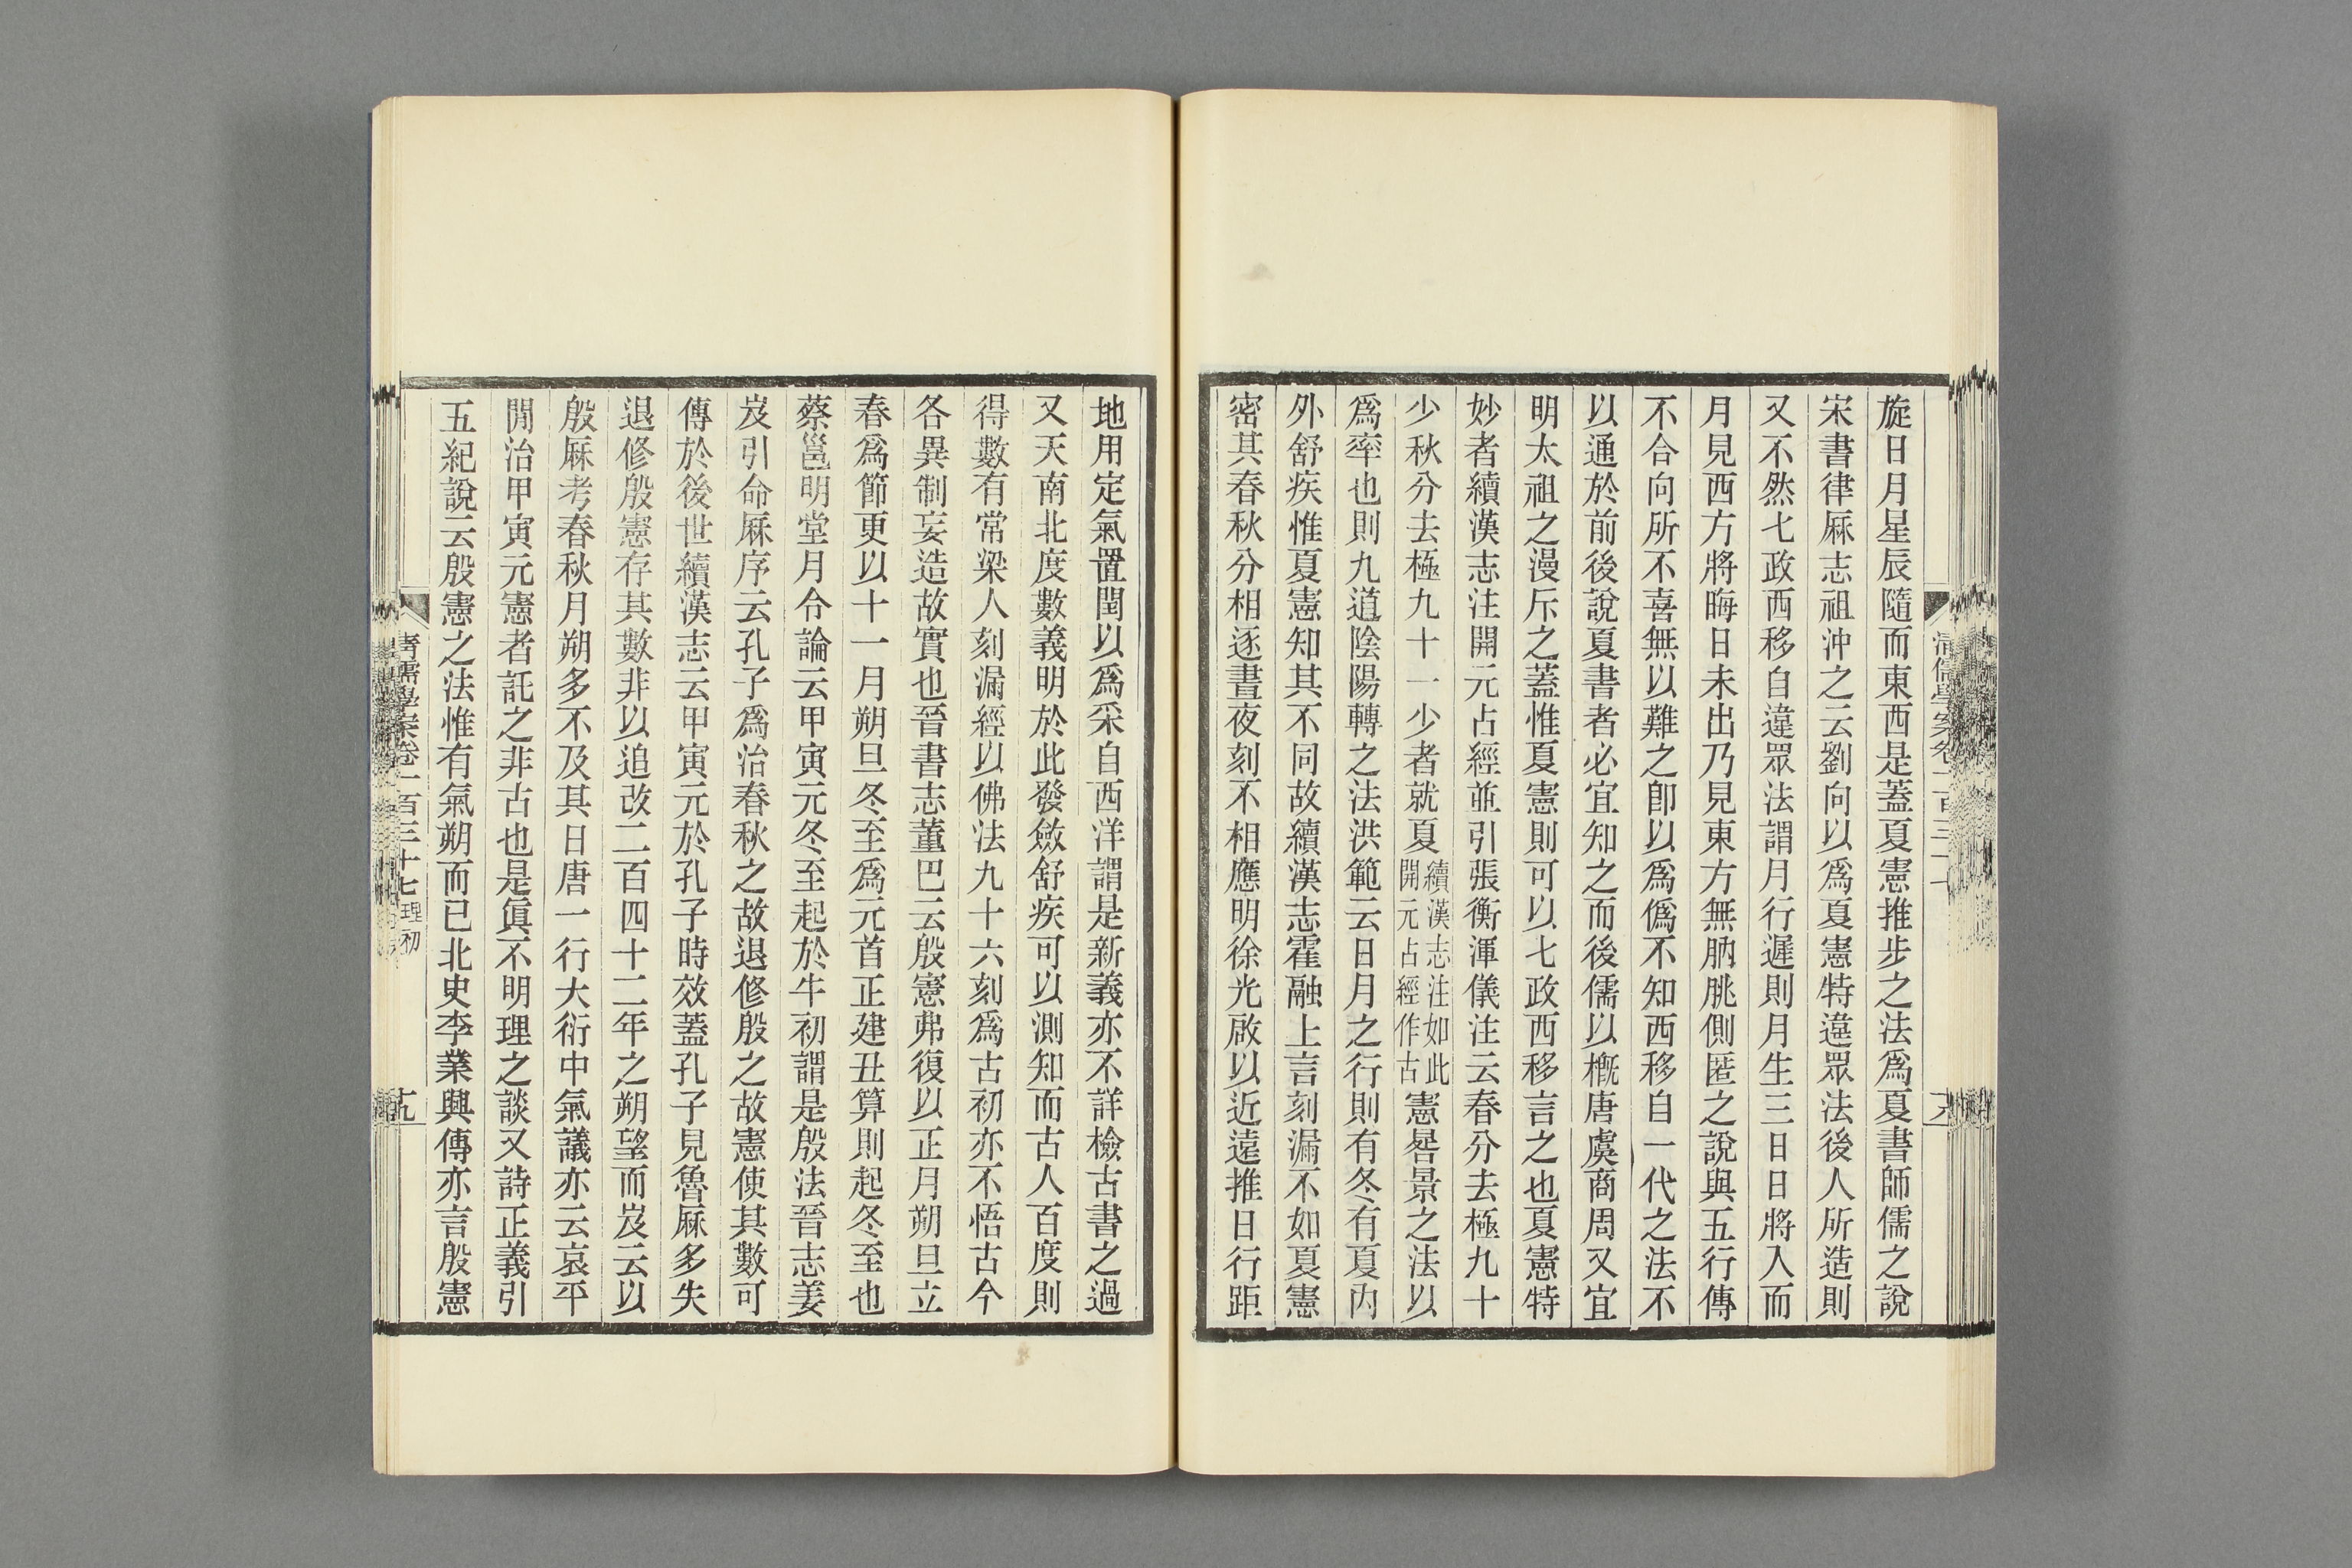 旋日月星辰隨而東西是蓋夏憲推步之法爲夏書師儒之說
宋書律厤志祖沖之云劉向以爲夏憲特違眾法後人所造則
又不然七政西移自違眾法謂月行遲則月生三日日將入而
月見西方將晦日未出乃見東方無朒朓側匿之說與五行傳
不合向所不喜無以難之卽以爲僞不知西移自一代之法不
以通於前後說夏書者必宜知之而後儒以槪唐虞商周又宜
明太祖之漫斥之蓋惟夏憲則可以七政西移言之也夏憲特
妙者續漢志注開元占經並引張衡渾儀注云春分去極九十
少秋分去極九十一少者就夏續漢志注如此開元占經作古憲晷景之法以
爲率也則九道陰陽轉之法洪範云日月之行則有冬有夏內
外舒疾惟夏憲知其不同故續漢志霍融上言刻漏不如夏憲
密其春秋分相逐晝夜刻不相應明徐光啟以近遠推日行距
地用定氣置閏以爲采自西洋謂是新義亦不詳檢古書之過
又天南北度數義明於此發斂舒疾可以測知而古人百度則
得數有常梁人刻漏經以佛法九十六刻爲古初亦不悟古今
各異制妄造故實也晉書志董巴云殷憲弗復以正月朔旦立
春爲節更以十一月朔旦冬至爲元首正建丑算則起冬至也
蔡邕明堂月令論云甲寅元冬至起於牛初謂是殷法晉志姜
岌引命厤序云孔子爲治春秋之故退修殷之故憲使其數可
傳於後世續漢志云甲寅元於孔子時效蓋孔子見魯厤多失
退修殷憲存其數非以追改二百四十二年之朔望而岌云以
殷厤考春秋月朔多不及其日唐一行大衍中氣議亦云哀平
閒治甲寅元憲者託之非古也是眞不明理之談又詩正義引
五紀說云殷憲之法惟有氣朔而已北史李業興傳亦言殷憲
清儒學案卷一百三十七 理初
十九